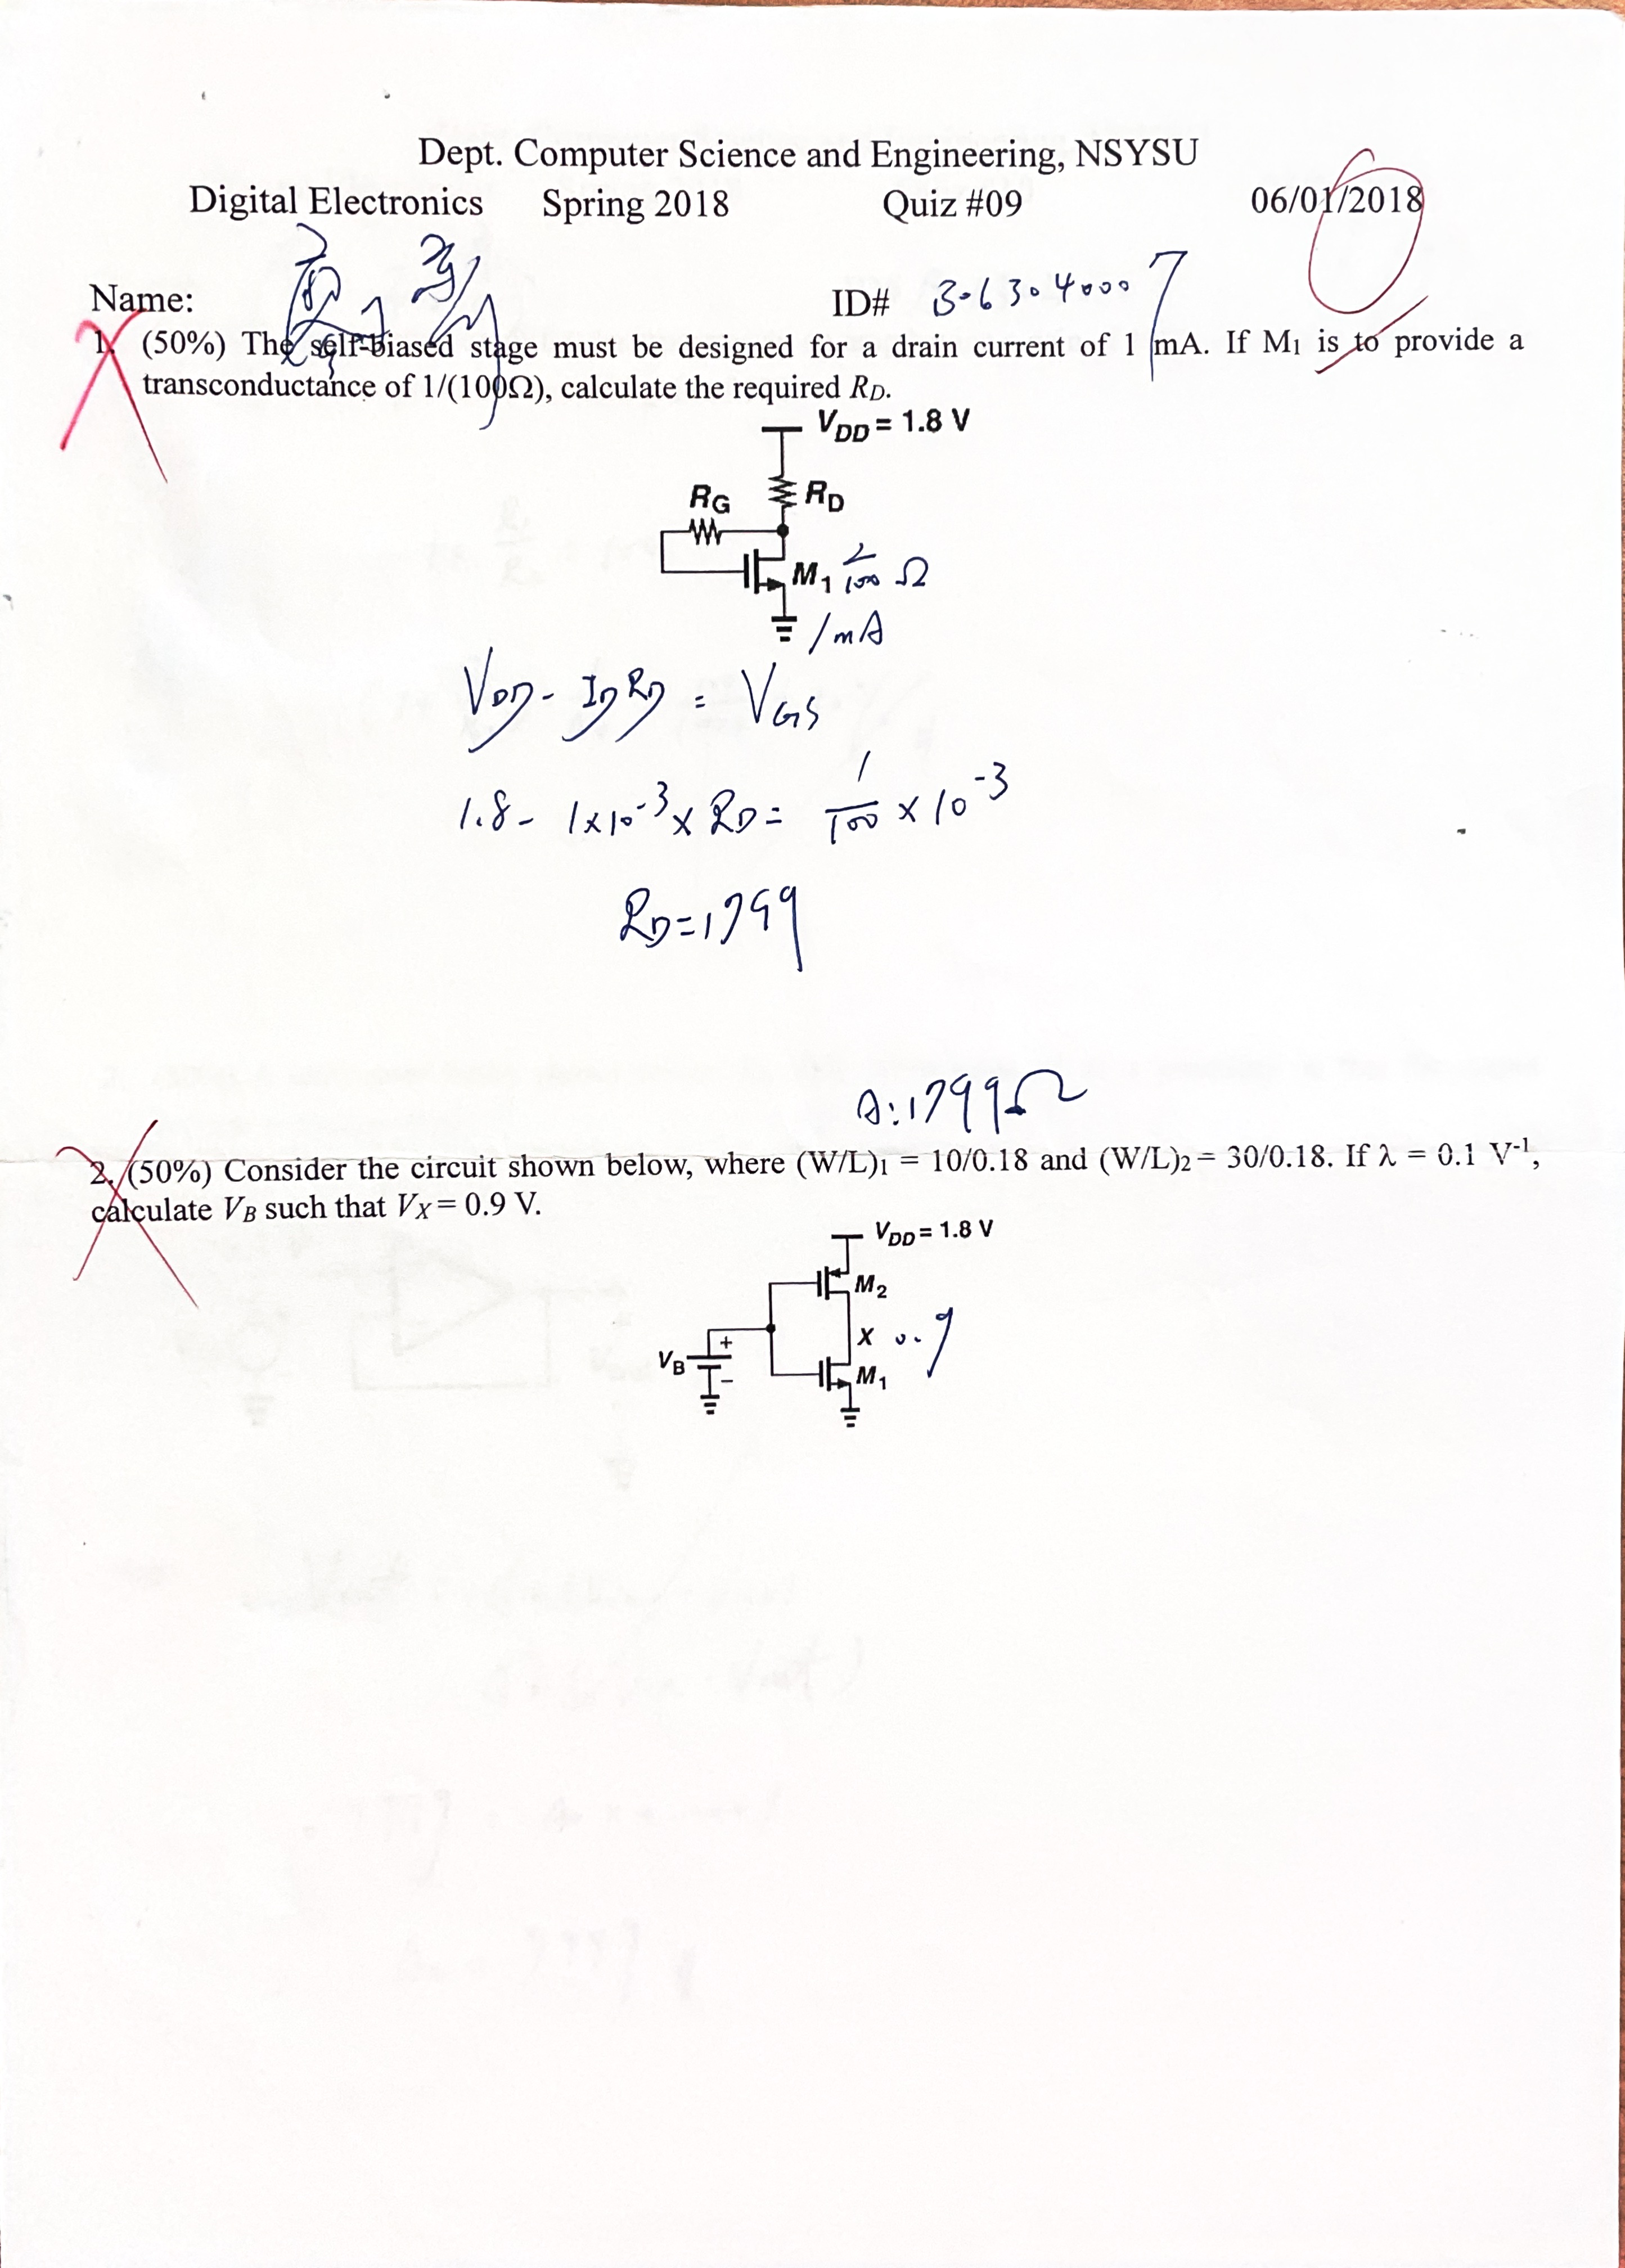 Dept. Computer Science and Engineering, NSYSU
Digital Electronics Spring 2018 Quiz #09 06/01/2018
0
Name: ID# B063040007
1. (50%) The self-biased stage must be designed for a drain current of 1 mA. If M1 is to provide a
transconductance of 1/(100Ω), calculate the required RD.
VDD = 1.8 V
RG RD
M1 1/100 Ω
1mA
VDD - IDRD = VGS
1.8 - 1×10^-3 × RD = 1/100 × 10^-3
RD = 1799
A: 1799Ω
2. (50%) Consider the circuit shown below, where (W/L)1 = 10/0.18 and (W/L)2 = 30/0.18. If λ = 0.1 V-1,
calculate VB such that VX = 0.9 V.
VDD = 1.8 V
M2
X 0.9
VB + −
M1